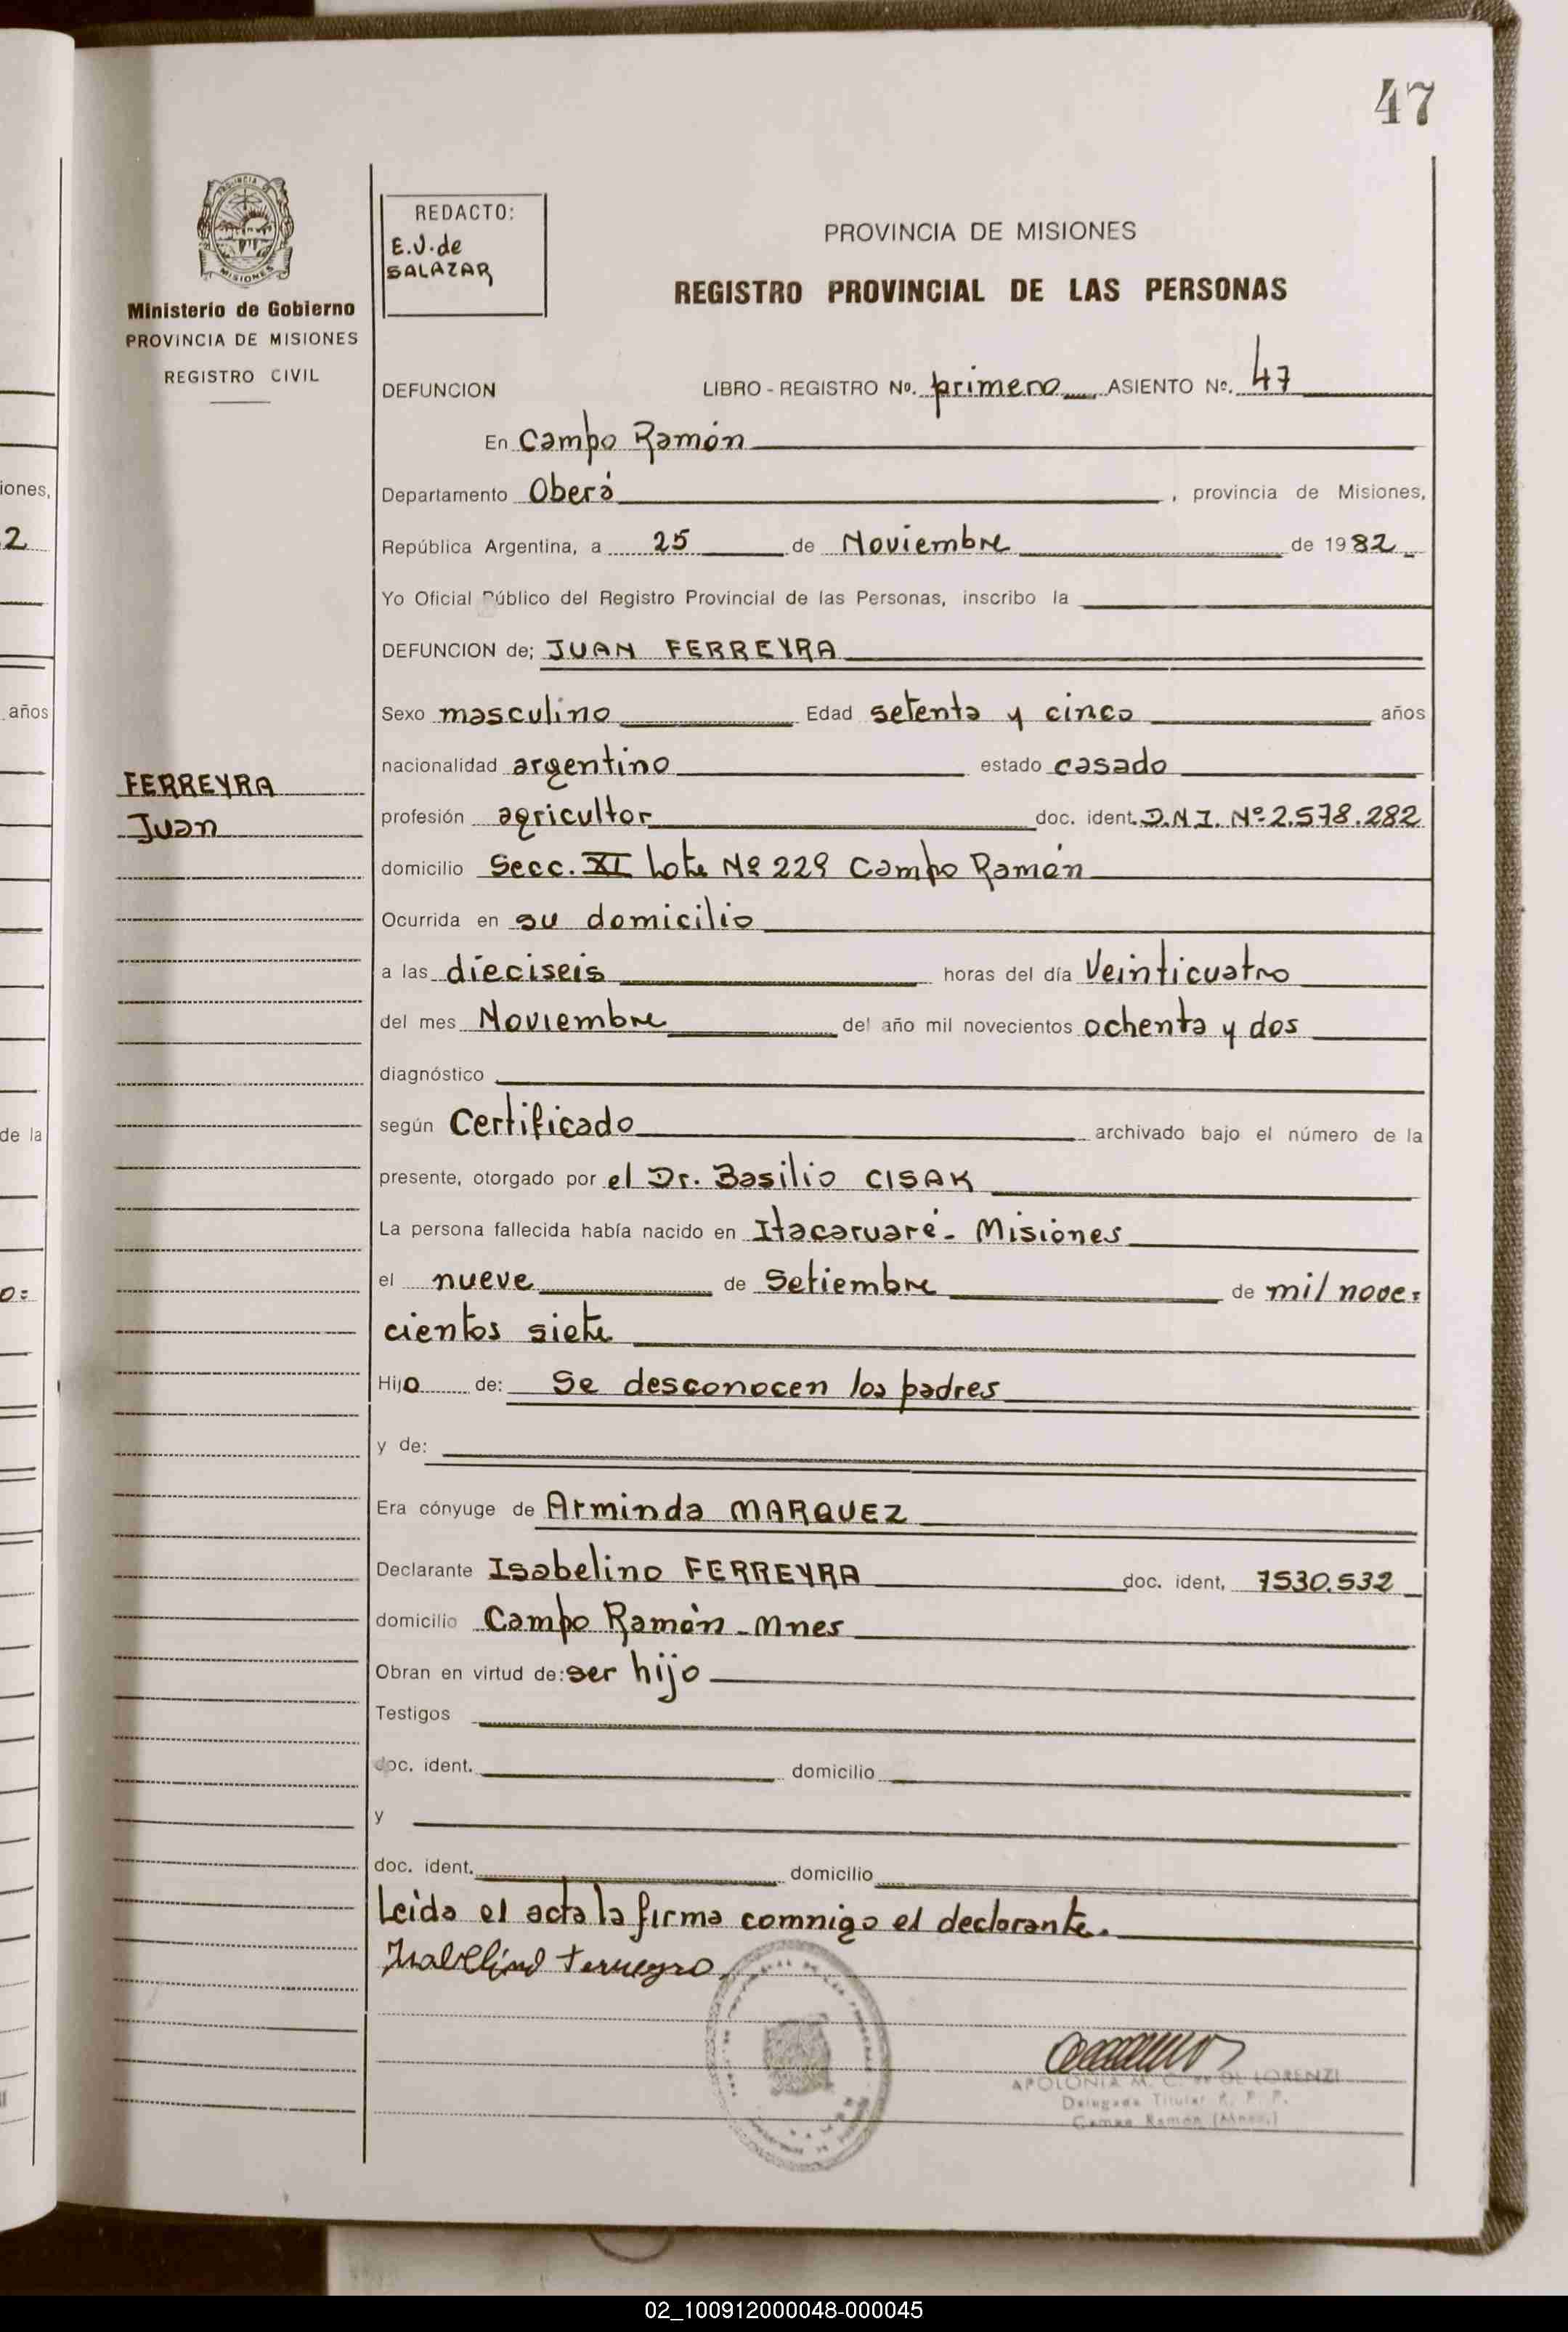 47
PROVINCIA DE
MISIONES
Ministerio de Gobierno
PROVINCIA DE MISIONES
REGISTRO CIVIL
REDACTO:
E.V. de
SALAZAR
PROVINCIA DE MISIONES
REGISTRO PROVINCIAL DE LAS PERSONAS
DEFUNCION LIBRO - REGISTRO Nº. primero ASIENTO Nº. 47
En Campo Ramón
Departamento Oberá, provincia de Misiones,
República Argentina, a 25 de Noviembre de 1982
Yo Oficial Público del Registro Provincial de las Personas, inscribo la
DEFUNCION de; JUAN FERREYRA
Sexo masculino Edad setenta y cinco años
nacionalidad argentino estado casado
FERREYRA
Juan
profesión agricultor doc. ident. D.N.I. Nº 2.578.282
domicilio Secc. XI Lote Nº 229 Campo Ramón
Ocurrida en su domicilio
a las dieciseis horas del día Veinticuatro
del mes Noviembre del año mil novecientos ochenta y dos
diagnóstico
según Certificado archivado bajo el número de la
presente, otorgado por el Dr. Basilio CISAK
La persona fallecida había nacido en Itacaruaré - Misiones
el nueve de Setiembre de mil nove=
cientos siete
Hijo de: Se desconocen los padres
y de:
Era cónyuge de Arminda MARQUEZ
Declarante Isabelino FERREYRA doc. ident, 7530.532
domicilio Campo Ramón - Mnes
Obran en virtud de: ser hijo
Testigos
doc. ident. domicilio
y
doc. ident. domicilio
Leida el acta la firma comnigo el declarante.
APOLONIA M. C. DE LORENZI
Delegada Titular R. P. P.
Campo Ramon (Mnes.)
iones,
2
años
de la
o=
02_100912000048-000045